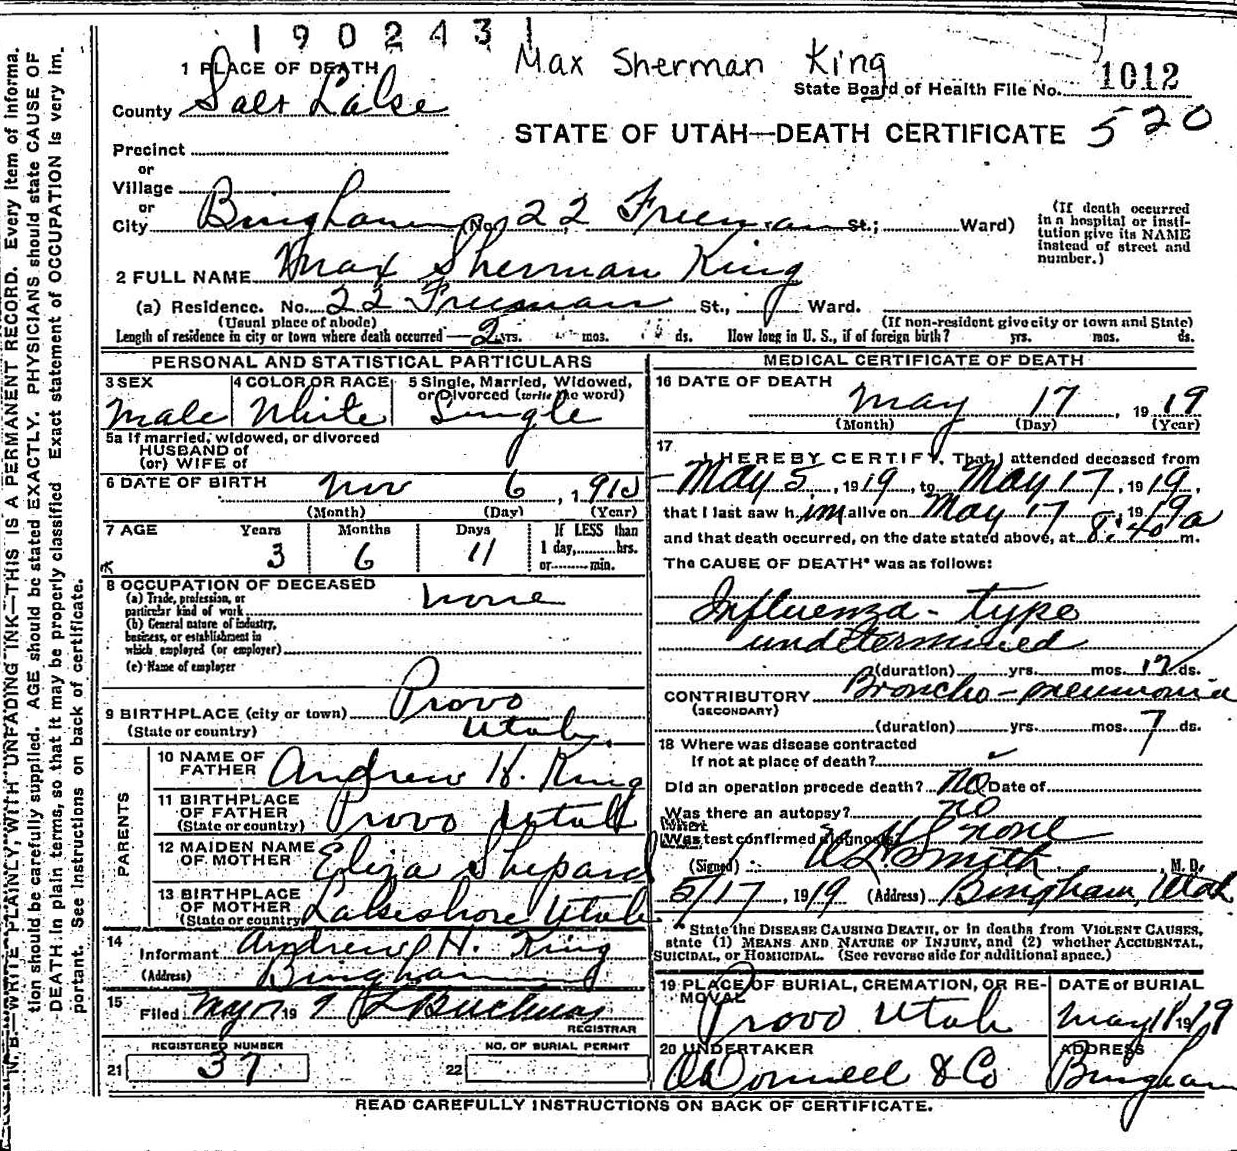 1902431
Max Sherman King
1 PLACE OF DEATH
State Board of Health File No. 1012
County Salt Lake
STATE OF UTAH—DEATH CERTIFICATE 520
Precinct
or
Village
or
City Bingham (No. 22 Freeman St.; Ward)
(If death occurred
in a hospital or insti-
tution give its NAME
instead of street and
number.)
2 FULL NAME Max Sherman King
(a) Residence. No. 22 Freeman St., Ward.
(Usual place of abode)
(If non-resident give city or town and State)
Length of residence in city or town where death occurred 2 yrs. mos. ds. How long in U. S., if of foreign birth? yrs. mos. ds.
PERSONAL AND STATISTICAL PARTICULARS
3 SEX
Male
4 COLOR OR RACE
White
5 Single, Married, Widowed,
or Divorced (write the word)
Single
5a If married, widowed, or divorced
HUSBAND of
(or) WIFE of
6 DATE OF BIRTH Nov 6, 1915
(Month) (Day) (Year)
7 AGE Years Months Days If LESS than
3 6 11 1 day, hrs.
or min.
8 OCCUPATION OF DECEASED
(a) Trade, profession, or
particular kind of work none
(b) General nature of industry,
business, or establishment in
which employed (or employer)
(c) Name of employer
9 BIRTHPLACE (city or town) Provo
(State or country) Utah.
PARENTS
10 NAME OF
FATHER Andrew H. King
11 BIRTHPLACE
OF FATHER
(State or country) Provo Utah
12 MAIDEN NAME
OF MOTHER Eliza Shepard
13 BIRTHPLACE
OF MOTHER
(State or country) Lakeshore Utah
14
Informant Andrew H. King
(Address) Bingham
15
Filed May 17 19
REGISTRAR
REGISTERED NUMBER
21 37
NO. OF BURIAL PERMIT
22
MEDICAL CERTIFICATE OF DEATH
16 DATE OF DEATH
May 17, 1919
(Month) (Day) (Year)
17
I HEREBY CERTIFY, That I attended deceased from
May 5, 1919, to May 17, 1919,
that I last saw him alive on May 17, 1919
and that death occurred, on the date stated above, at 8:40 a m.
The CAUSE OF DEATH* was as follows:
Influenza - type
undetermined
(duration) yrs. mos. 12 ds.
CONTRIBUTORY Broncho-pneumonia
(SECONDARY)
(duration) yrs. mos. 7 ds.
18 Where was disease contracted
If not at place of death?
Did an operation precede death? No Date of
Was there an autopsy? no
What
Was test confirmed diagnosis? none
(Signed) Smith, M. D.
5/17, 1919 (Address) Bingham, Utah
* State the DISEASE CAUSING DEATH, or in deaths from VIOLENT CAUSES,
state (1) MEANS AND NATURE OF INJURY, and (2) whether ACCIDENTAL,
SUICIDAL, or HOMICIDAL. (See reverse side for additional space.)
19 PLACE OF BURIAL, CREMATION, OR RE-
MOVAL
Provo Utah
DATE of BURIAL
May 18 1919
20 UNDERTAKER
O'Donnell & Co
ADDRESS
Bingham
READ CAREFULLY INSTRUCTIONS ON BACK OF CERTIFICATE.
N. B.—WRITE PLAINLY, WITH UNFADING INK—THIS IS A PERMANENT RECORD. Every item of informa-
tion should be carefully supplied. AGE should be stated EXACTLY. PHYSICIANS should state CAUSE OF
DEATH in plain terms, so that it may be properly classified. Exact statement of OCCUPATION is very im-
portant. See Instructions on back of certificate.